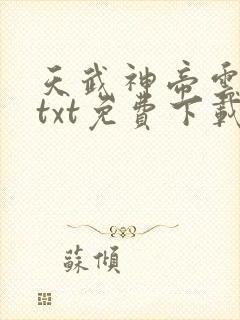 天武神帝電
txt免費下載
蘇傾